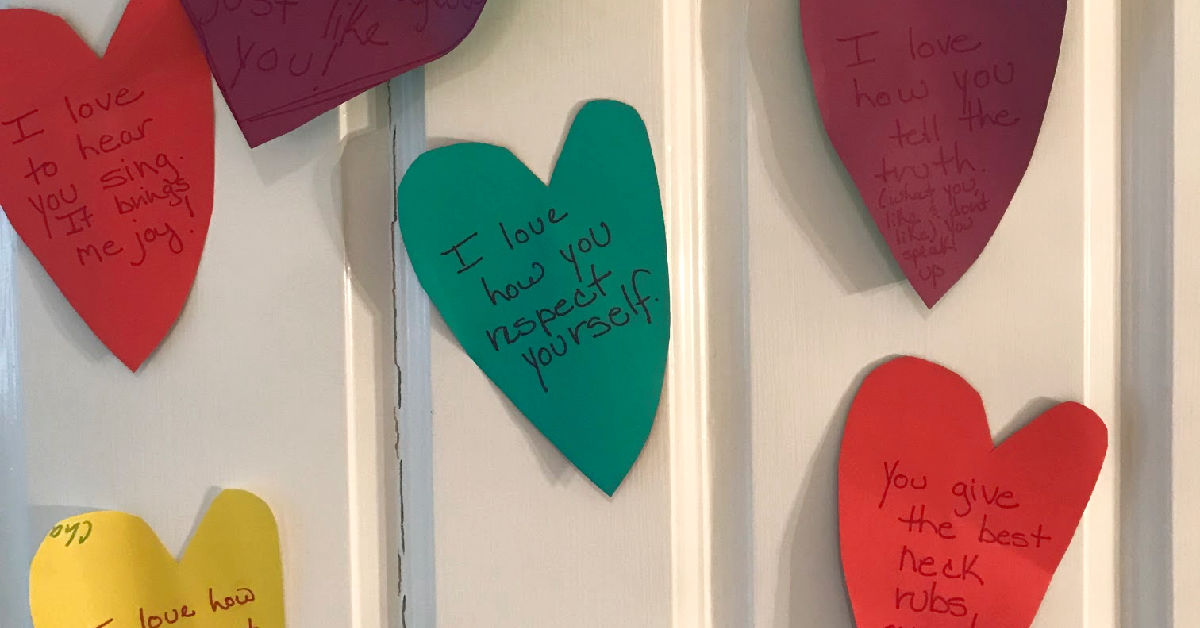 I love
to hear
you sing.
It brings
me joy!
just like
you!
I love
how you
respect
yourself.
I love
how you
tell the
truth.
(what you
like & dont
like) you
speak
up
You give
the best
neck
rubs,
Cha
I love how